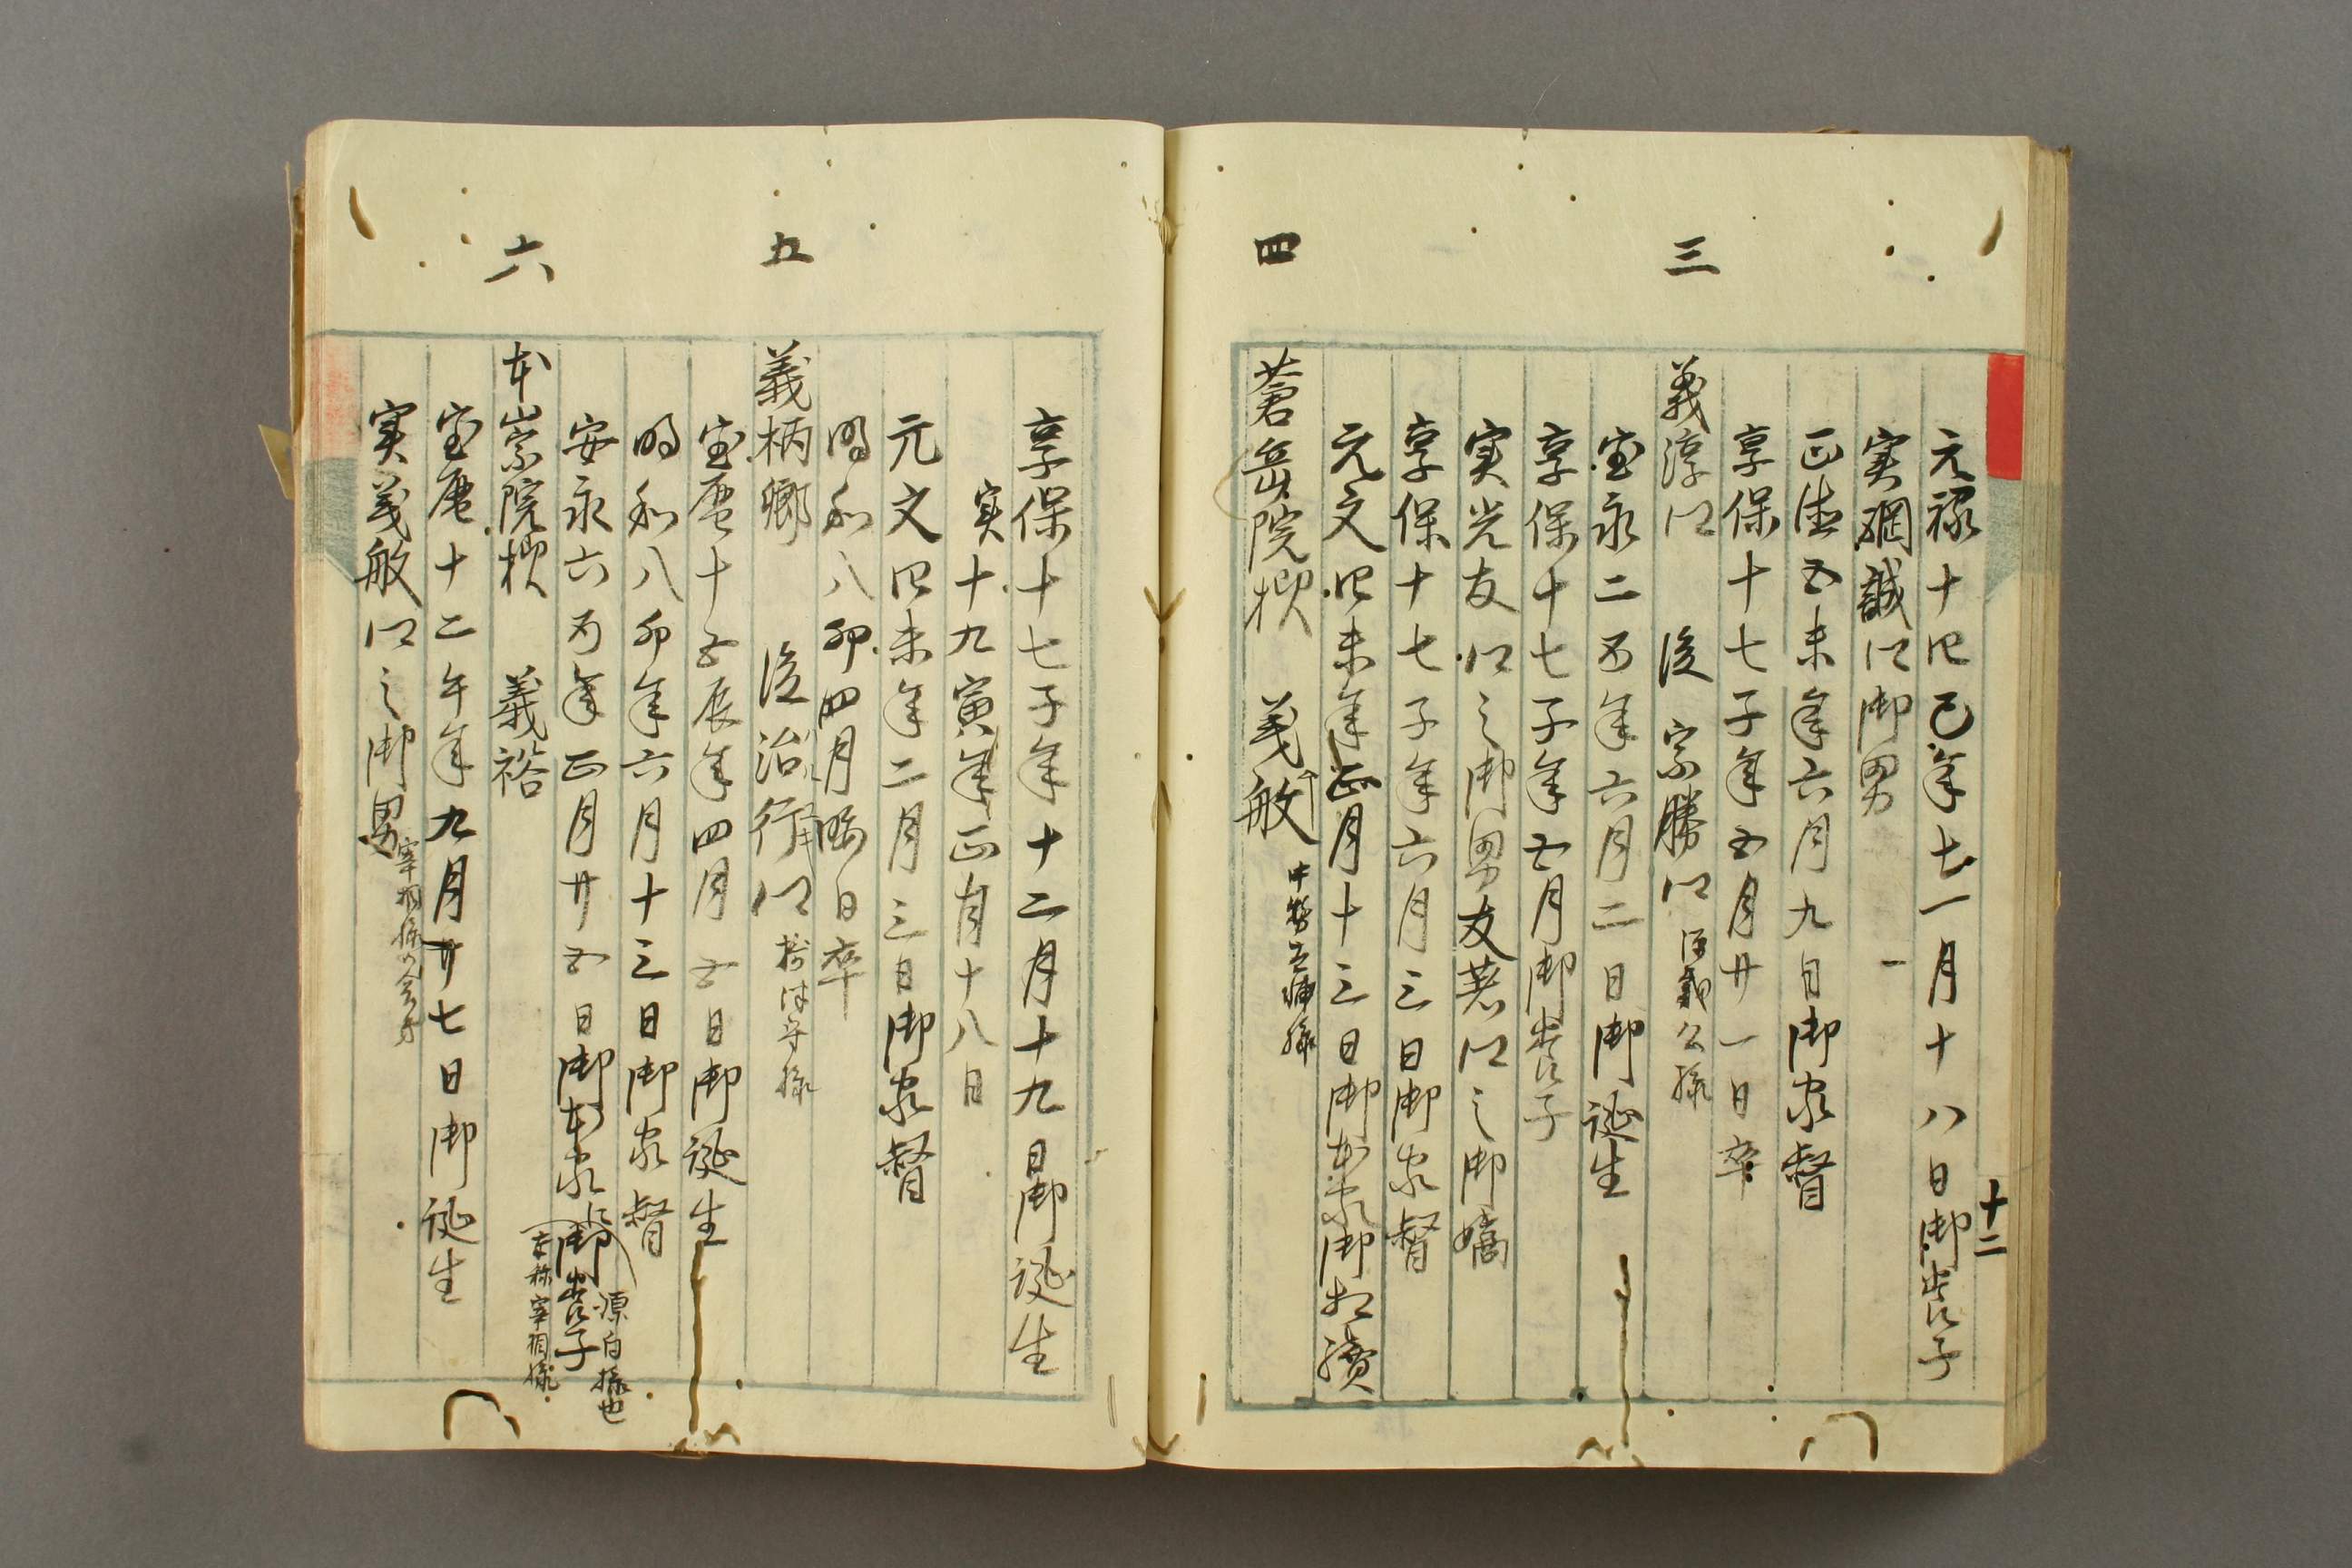 十二
元禄十四巳年七一月十八日御出生
実綱誠卿御男
正徳五未年六月九日御家督
享保十七子年五月廿一日卒
三
義淳卿 後 宗勝卿
宝永二酉年六月二日御誕生
享保十七子年五月御養子
実光友卿之御男友著卿之御嫡
享保十七子年六月三日御家督
元文四未年正月十三日御本家御相續
四
蒼岳院様 義敏 中務大輔様
享保十七子年十二月十九日御誕生
実十九寅年正月十八日
元文四未年二月三日御家督
明和八卯四月 日卒
五
義柄卿 後治行卿 摂津守様
宝暦十子辰年四月五日御誕生
明和八卯年六月十三日御家督
安永六酉年正月廿五日御本家江御養子
源白様也
六
本崇院様 義裕
宝暦十二午年九月廿七日御誕生
実義敏卿之御男